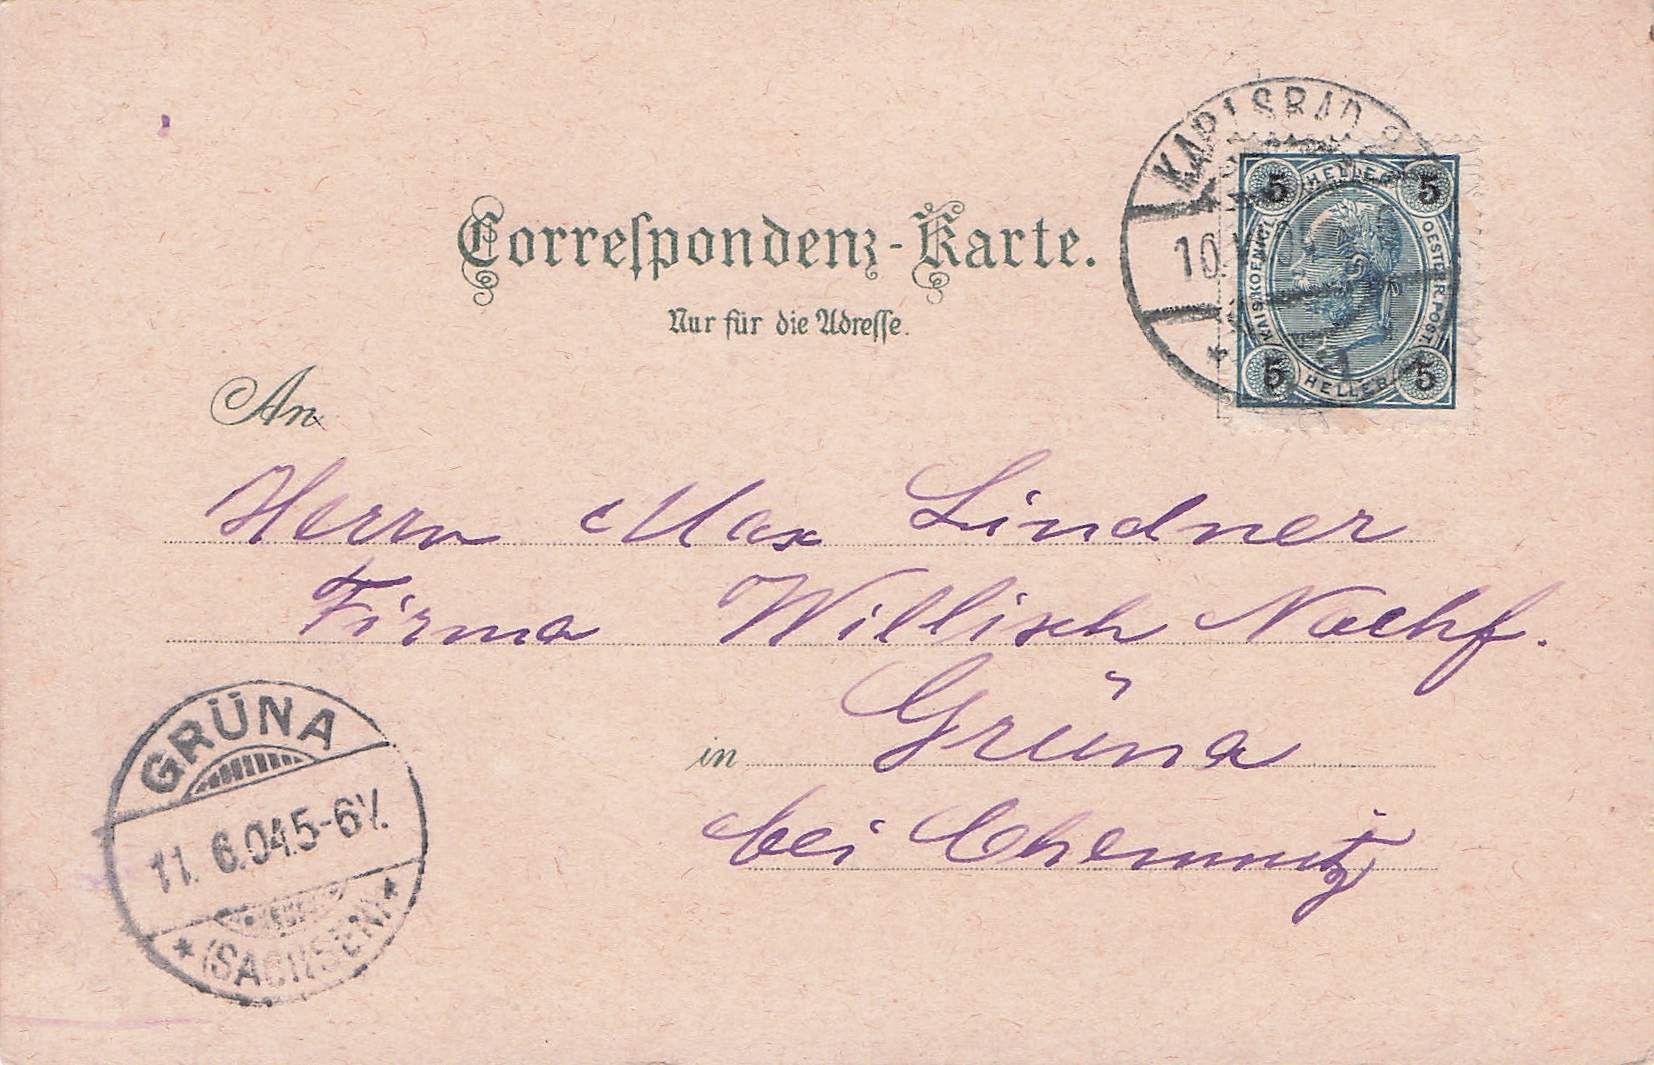 Correspondenz-Karte.
Nur für die Adresse.
An
Herrn Max Lindner
Firma Willisch Nachf.
in Grüna
bei Chemnitz
KARLSBAD
10
5 HELLER 5
KAIS. KOENIGL. OESTERR. POST.
5 HELLER 5
GRÜNA
11. 6.04.5-6V.
* (SACHSEN) *